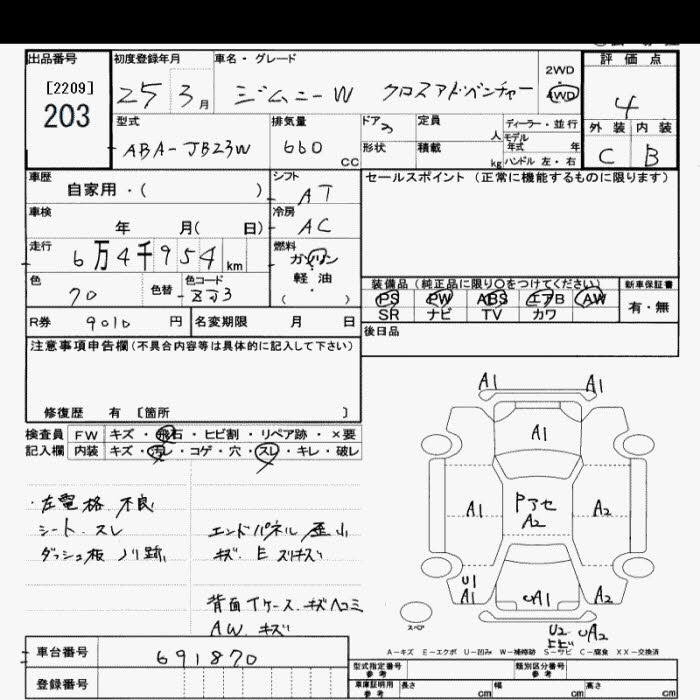 出品番号
[2209]
203
初度登録年月
25 3月
車名・グレード
ジムニーW クロスアドベンチャー
2WD
4WD
評価点
4
外装 内装
C B
型式
ABA-JB23W
排気量
660 cc
ドア 3
定員 人
形状
積載 kg
ディーラー・並行
モデル年式 年
ハンドル 左・右
車歴
自家用・( )
シフト
AT
セールスポイント(正常に機能するものに限ります)
車検
年 月( 日)
冷房
AC
走行
6万4千954km
燃料
ガソリン
軽油
( ・ )
色
70
色替
色コード
ZJ3
装備品(純正品に限り○をつけてください)
新車保証書
PS PW ABS エアB AW
SR ナビ TV カワ
有・無
R券 9010 円
名変期限 月 日
後日品
注意事項申告欄(不具合内容等は具体的に記入して下さい)
修復歴 有 〔箇所 〕
検査員
記入欄
FW キズ・飛石・ヒビ割・リペア跡・×要
内装 キズ・汚レ・コゲ・穴・スレ・キレ・破レ
・左電格 不良
シート スレ
ダッシュ板 ノリ跡
エンドパネル 歪小
キズ E スリキズ
背面Tケース キズヘコミ
AW キズ
A1 A1
A1
A1 Pアセ A2 A2
U1 A1 A1 A2
U2 A2
スペア
A-キズ E-エクボ U-凹み W-補修跡 S-サビ C-腐食 XX-交換済
車台番号
691870
登録番号
型式指定番号 参考
類別区分番号 参考
車庫証明用 参考
長さ cm 幅 cm 高さ cm